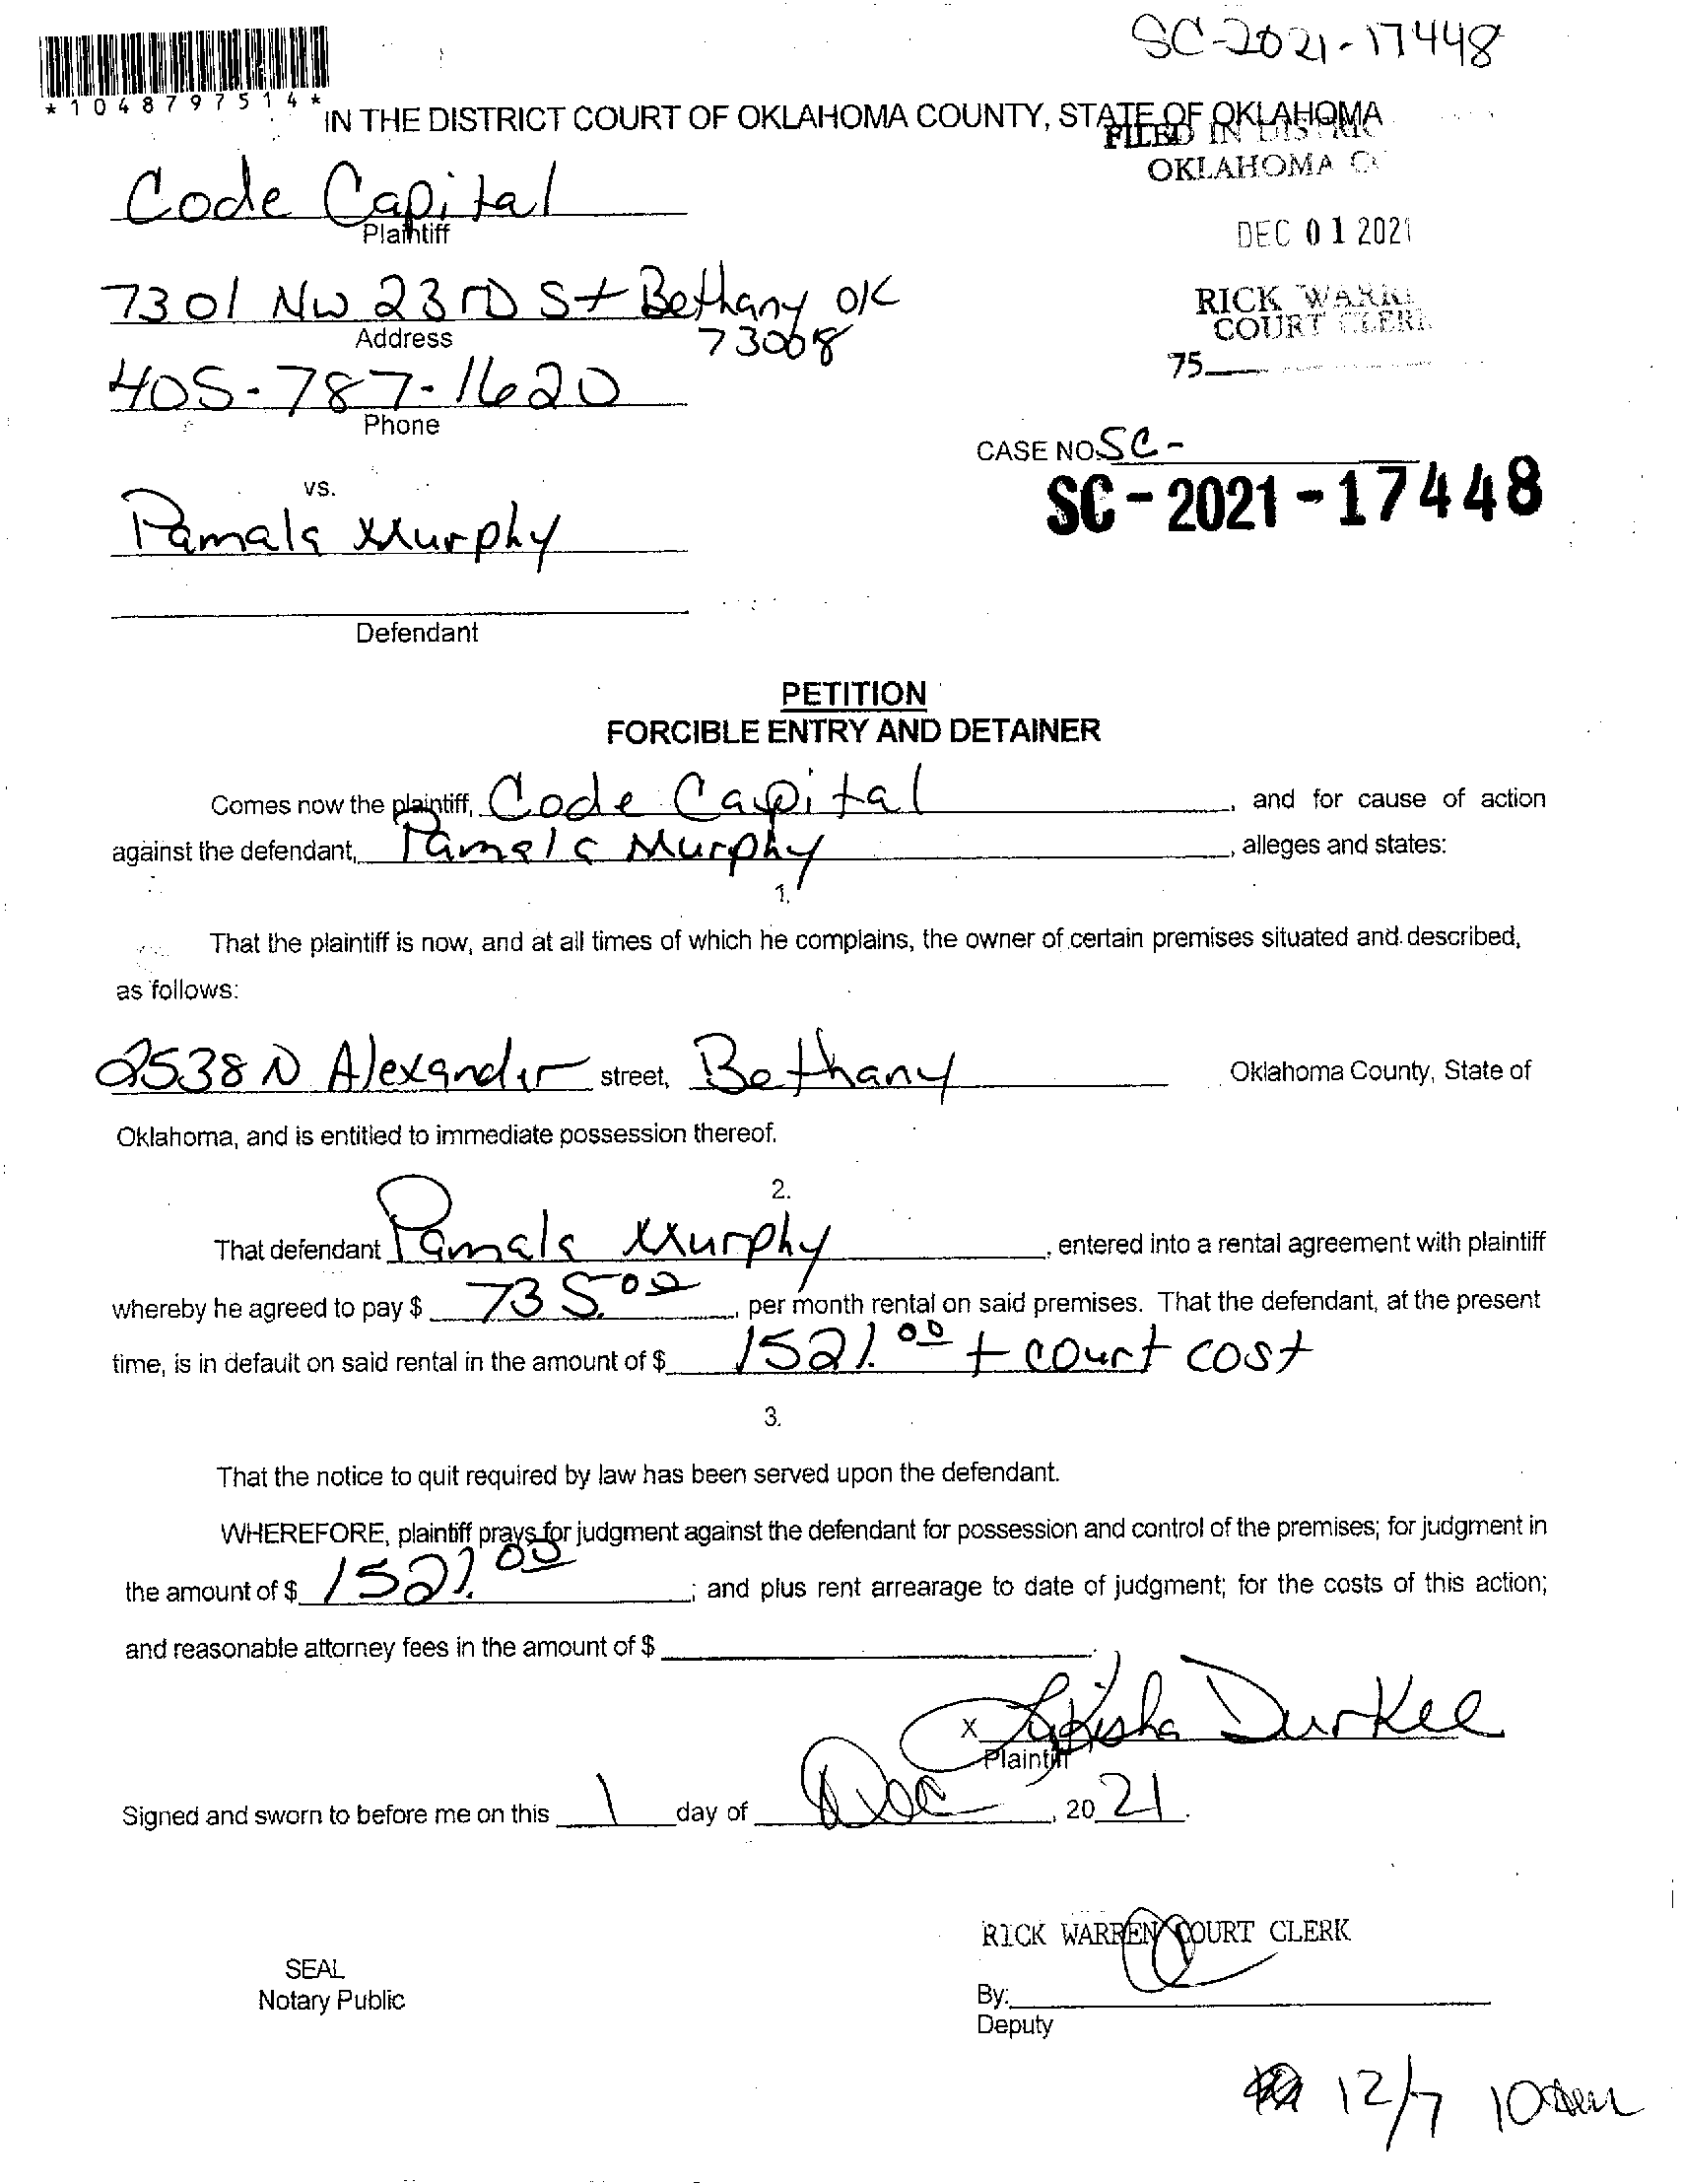 SC-2021-17448
*1048797514*
IN THE DISTRICT COURT OF OKLAHOMA COUNTY, STATE OF OKLAHOMA
FILED IN
OKLAHOMA
Code Capital
Plaintiff
DEC 01 2021
7301 NW 23RD St Bethany OK
73008
Address
RICK
COURT CLERK
75
405-787-1620
Phone
CASE NO. SC-
SC-2021-17448
vs.
Pamala Murphy
Defendant
PETITION
FORCIBLE ENTRY AND DETAINER
Comes now the plaintiff, Code Capital, and for cause of action
against the defendant, Pamala Murphy, alleges and states:
1.
That the plaintiff is now, and at all times of which he complains, the owner of certain premises situated and described,
as follows:
2538 N Alexander street, Bethany Oklahoma County, State of
Oklahoma, and is entitled to immediate possession thereof.
2.
That defendant Pamala Murphy, entered into a rental agreement with plaintiff
whereby he agreed to pay $ 735.00, per month rental on said premises. That the defendant, at the present
time, is in default on said rental in the amount of $ 1521.00 + court cost
3.
That the notice to quit required by law has been served upon the defendant.
WHEREFORE, plaintiff prays for judgment against the defendant for possession and control of the premises; for judgment in
the amount of $ 1521.00; and plus rent arrearage to date of judgment; for the costs of this action;
and reasonable attorney fees in the amount of $
X Durkee
Plaintiff
Signed and sworn to before me on this 1 day of Dec, 2021.
RICK WARREN COURT CLERK
SEAL
Notary Public
By:
Deputy
12/7 10am